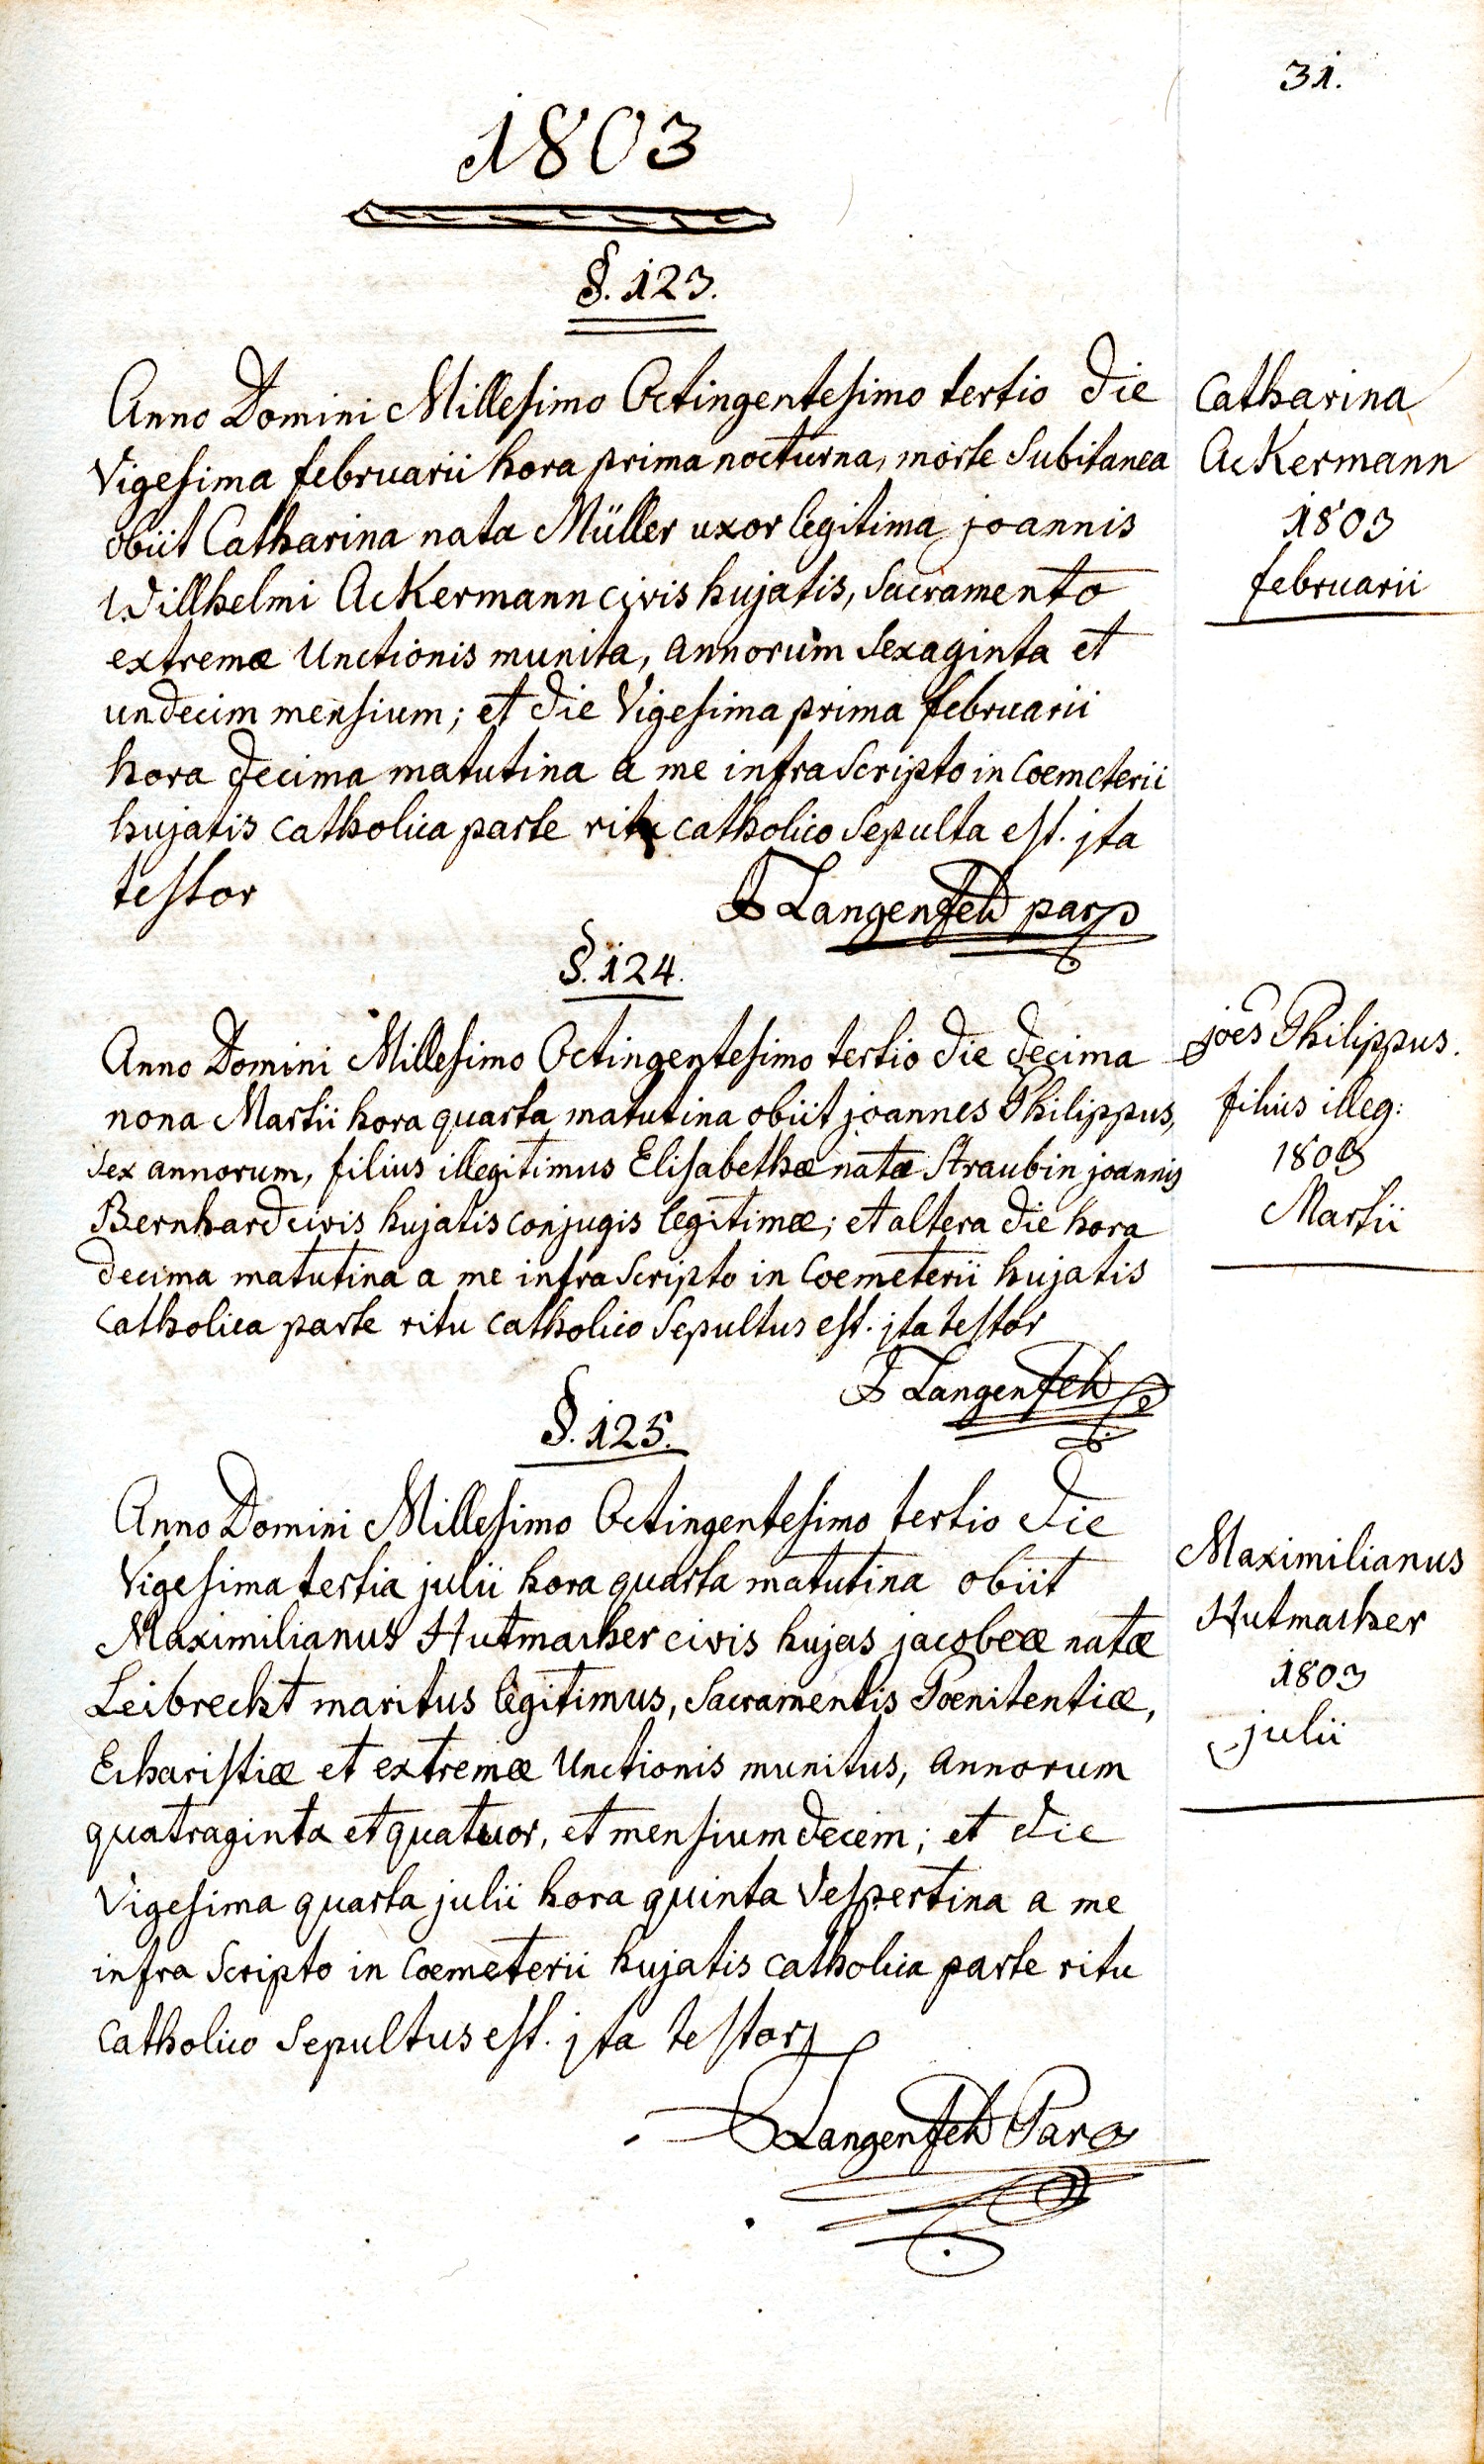 31.
1803
§. 123.
Anno Domini Millesimo Octingentesimo tertio die
Vigesima februarii hora prima nocturna, morte Subitanea
obiit Catharina nata Müller uxor legitima joannis
Willhelmi AcKermann civis hujatis, Sacramento
extremæ Unctionis munita, annorum Sexaginta et
undecim mensium; et die Vigesima prima februarii
hora decima matutina a me infra Scripto in Coemeterii
hujatis catholica parte ritu catholico Sepulta est. jta
testor
Langenfeld par
Catharina
AcKermann
1803
februarii
§. 124.
Anno Domini Millesimo Octingentesimo tertio die decima
nona Martii hora quarta matutina obiit joannes Philippus,
Sex annorum, filius illegitimus Elisabethæ natæ Straubin joannis
Bernhard civis hujatis conjugis legitimæ; et altera die hora
decima matutina a me infra Scripto in Coemeterii hujatis
catholica parte ritu catholico Sepultus est. jta testor
Langenfeld
joes Philippus.
filius illeg:
1803
Martii
§. 125.
Anno Domini Millesimo Octingentesimo tertio die
Vigesima tertia julii hora quarta matutina obiit
Maximilianus Hutmacher civis hujas jacobeæ natæ
Leibrecht maritus legitimus, Sacramentis Poenitentiæ,
Echaristiæ et extremæ Unctionis munitus, annorum
quatraginta et quatuor, et mensium decem; et die
Vigesima quarta julii hora quinta Vespertina a me
infra Scripto in Coemeterii hujatis catholica parte ritu
catholico Sepultus est. jta testor
Langenfeld Par
Maximilianus
Hutmacher
1803
julii